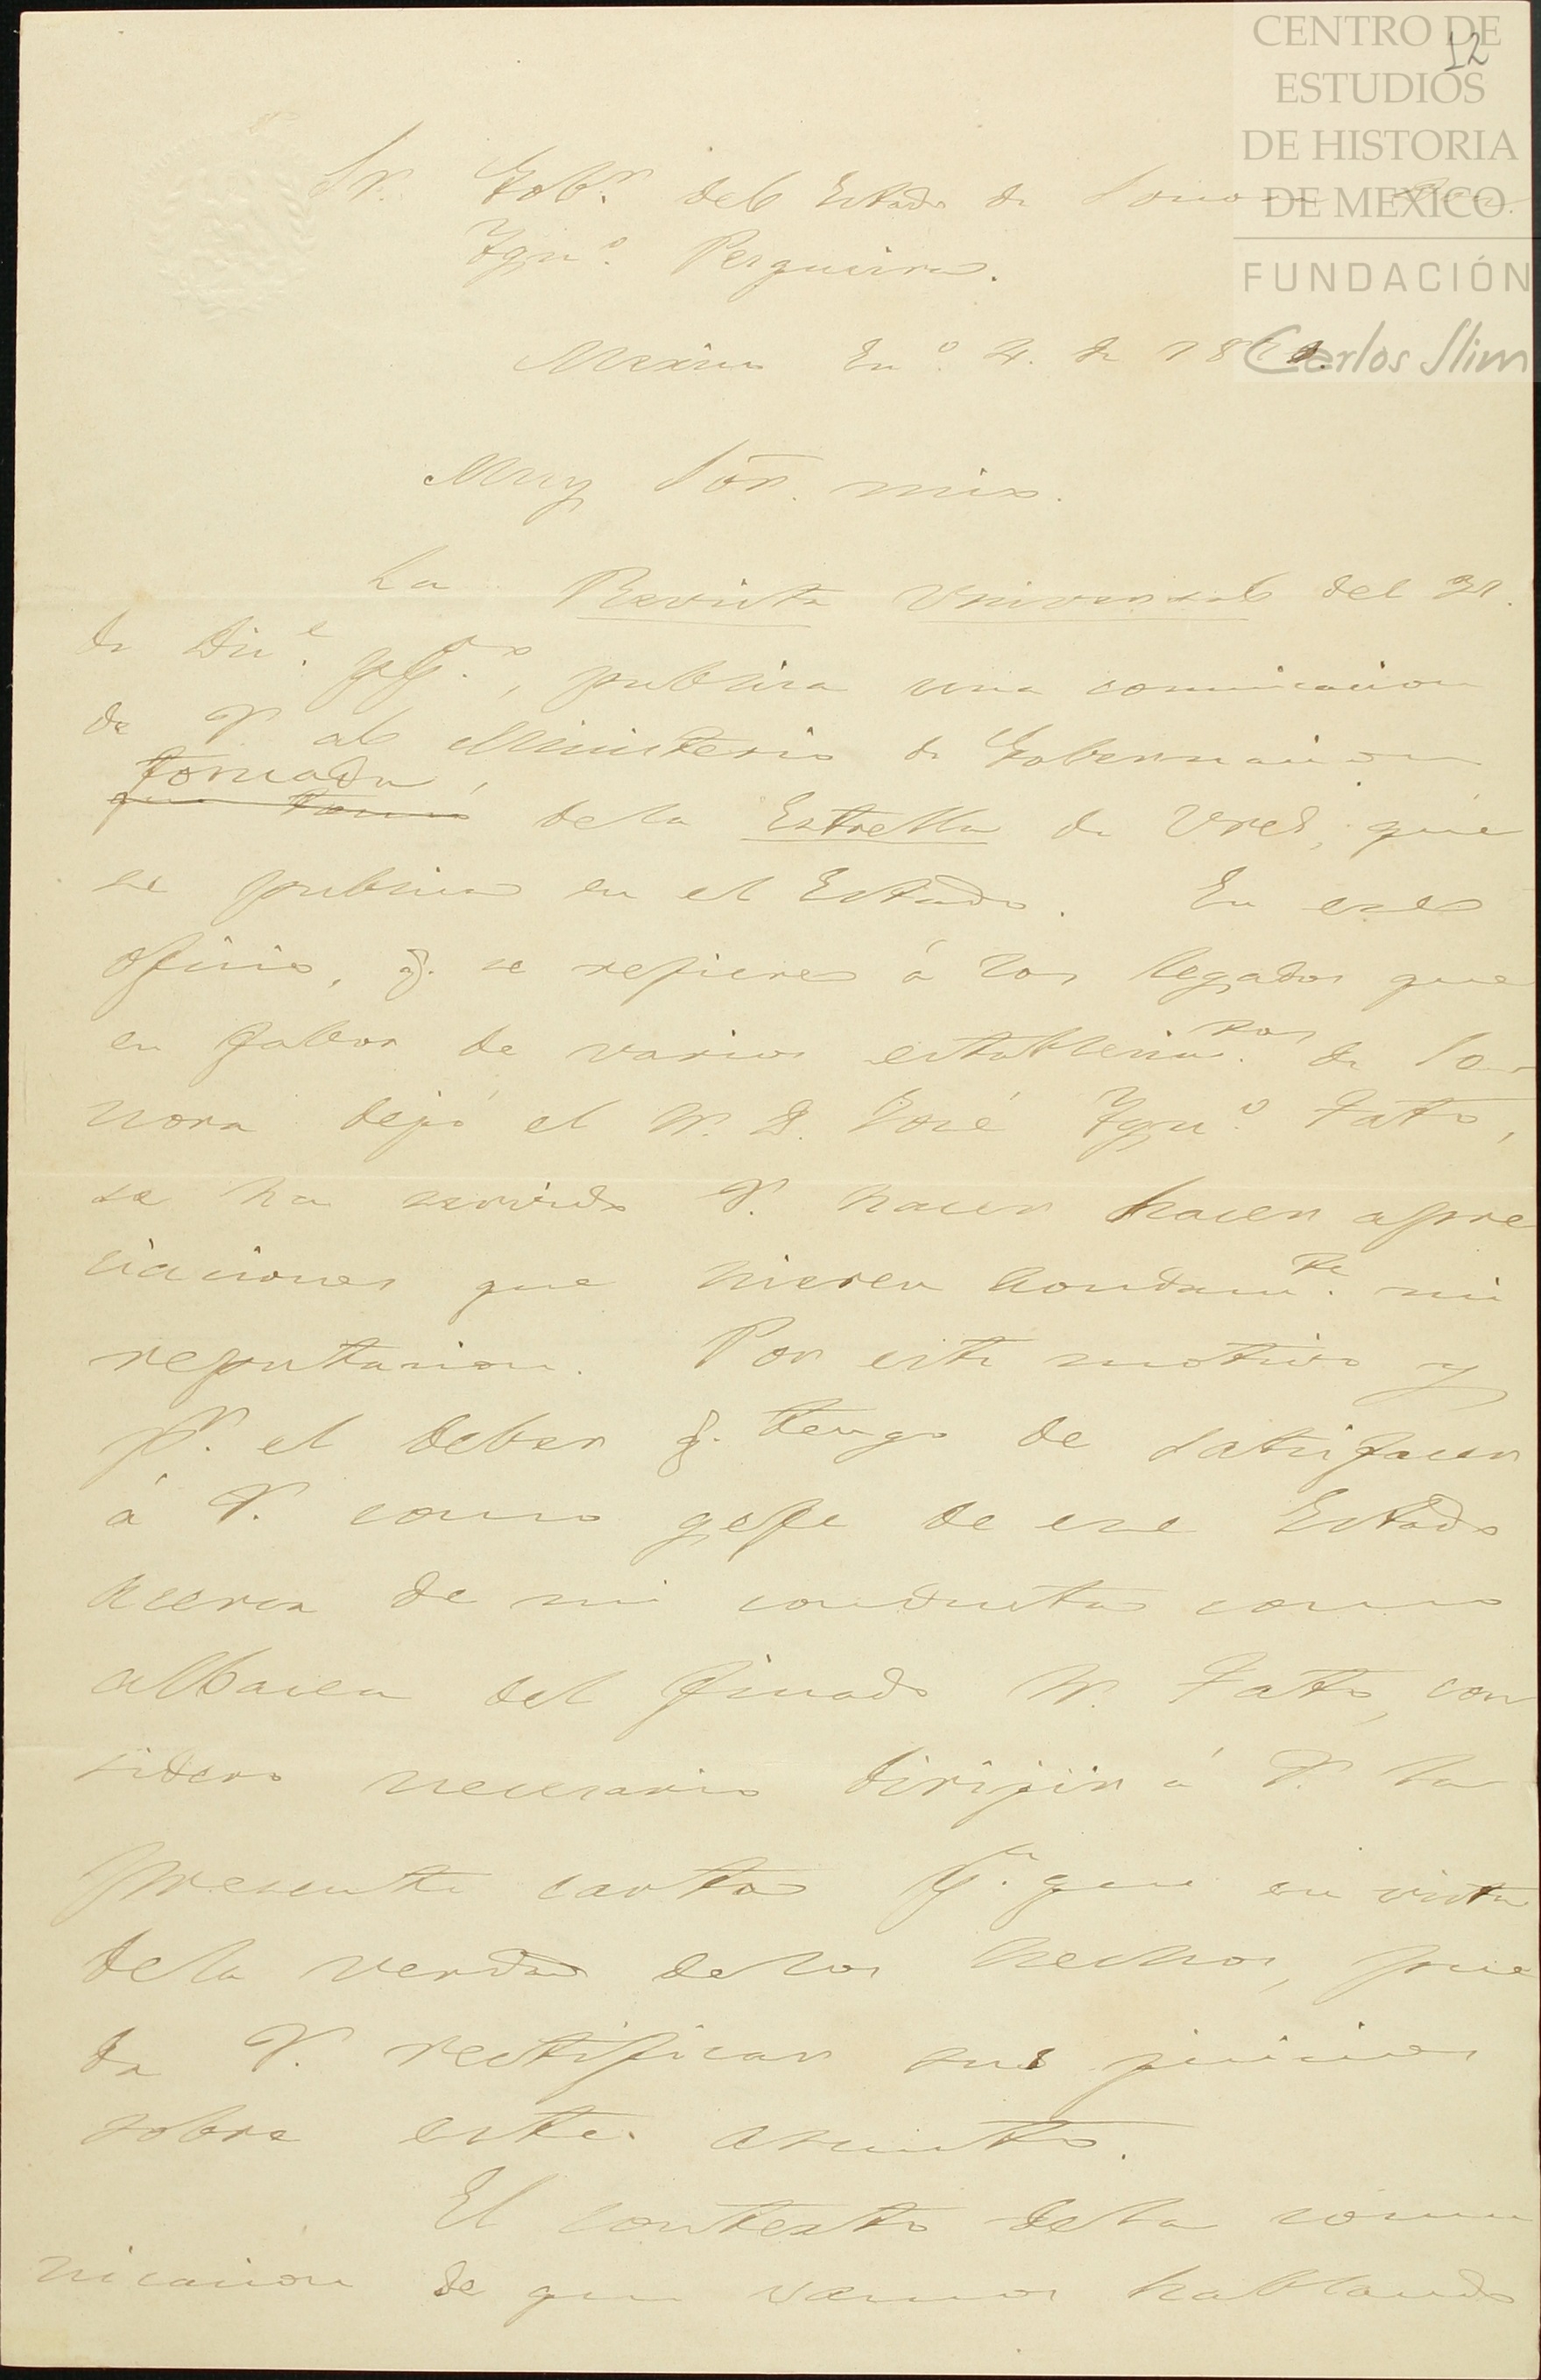 CENTRO DE
ESTUDIOS
DE HISTORIA
DE MEXICO
FUNDACIÓN
Carlos Slim
12
Sr. Gobr. del Estado de Sonora
Ygno. Pesqueira.
Mexico En.o 4. de 18
Muy Sōr. mio.
La Revista Universal del 31.
de Dic.e ppo., publica una comunicacion
de V. al Ministerio de Gobernacion
tomada,
que tomó dela Estrella de Ures, que
se publica en el Estado. En ese
oficio, q. se refiere á los legados que
en fabor de varios establecimtos. de So-
nora dejó el Sr. D. José Ygno. Fato,
se ha servido V. hacer hacer apre
ciaciones que hieren hondamte. mi
reputacion. Por este motivo y
pr. el deber q. tengo de satisfacer
á V. como gefe de ese Estado
acerca de mi conducta como
albacea del finado Sr. Fato, con
sidero necesario dirijir á V. la
presente carta pa. que en vista
dela verdad delos hechos, pue
da V. rectificar sus juicios
sobre este asunto.
El contexto dela comu
nicacion de que vamos hablando